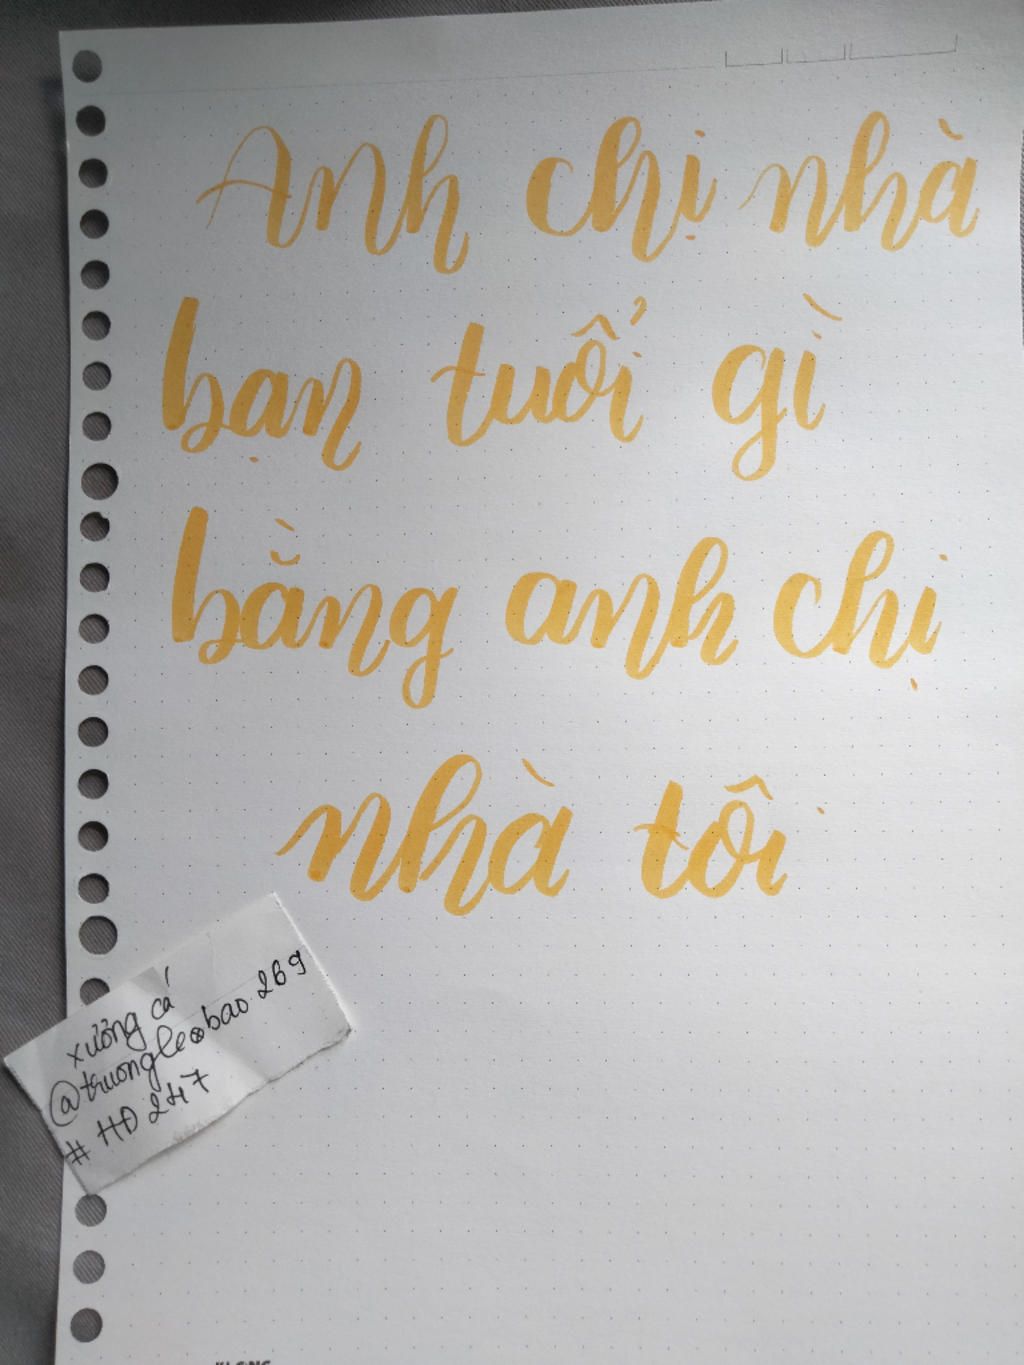 Anh chị nhà
bạn tuổi gì
bằng anh chị
nhà tôi
xưởng cá
@truongle bao.269
# HĐ 247